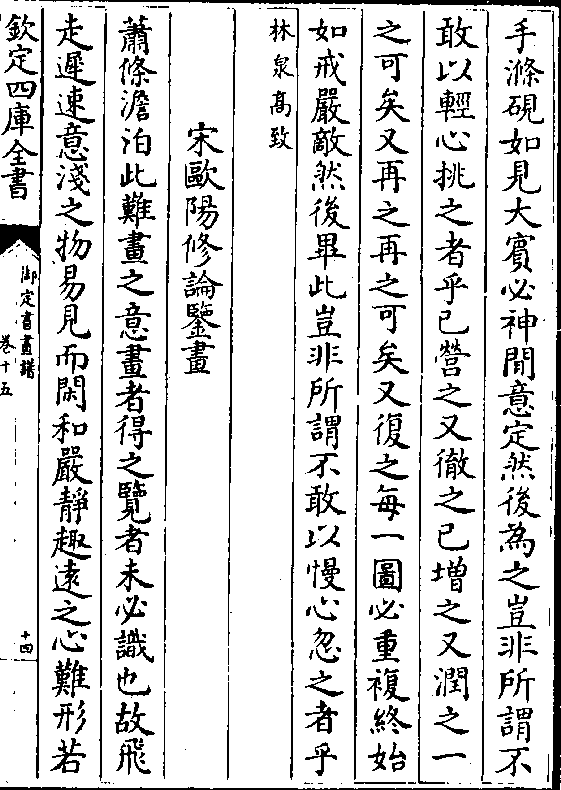 手滌硯如見大賓必神閒意定然後為之豈非所謂不
敢以輕心挑之者乎已營之又徹之已増之又潤之一
之可矣又再之再之可矣又復之每一圖必重複終始
如戒嚴敵然後畢此豈非所謂不敢以慢心忽之者乎
林泉髙致
宋歐陽修論鑒畫
蕭條澹泊此難畫之意畫者得之覽者未必識也故飛
走遲速意淺之物易見而閑和嚴靜趣逺之心難形若
欽定四庫全書
御定書畫譜
卷十五
十四